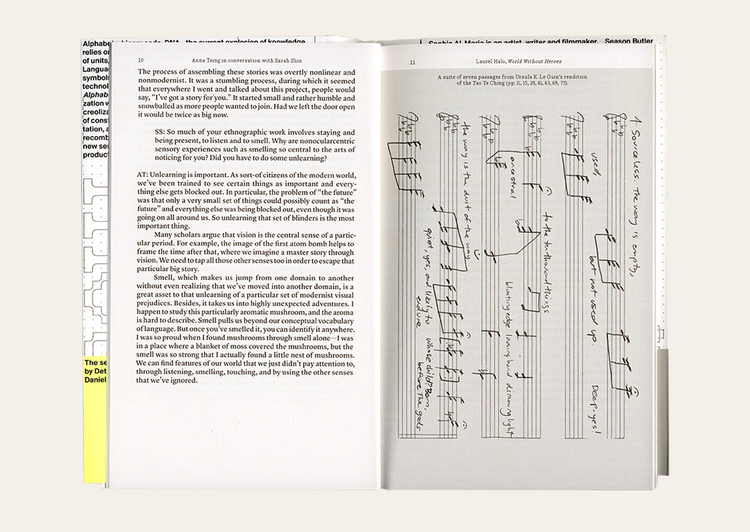 10
Anna Tsing in conversation with Sarah Shin
The process of assembling these stories was overtly nonlinear and
nonmodernist. It was a stumbling process, during which it seemed
that everywhere I went and talked about this project, people would
say, "I've got a story for you." It started small and rather humble and
snowballed as more people wanted to join. Had we left the door open
it would be twice as big now.
SS: So much of your ethnographic work involves staying and
being present, to listen and to smell. Why are nonocularcentric
sensory experiences such as smelling so central to the arts of
noticing for you? Did you have to do some unlearning?
AT: Unlearning is important. As sort-of citizens of the modern world,
we've been trained to see certain things as important and every-
thing else gets blocked out. In particular, the problem of "the future"
was that only a very small set of things could possibly count as "the
future" and everything else was being blocked out, even though it was
going on all around us. So unlearning that set of blinders is the most
important thing.
Many scholars argue that vision is the central sense of a partic-
ular period. For example, the image of the first atom bomb helps to
frame the time after that, where we imagine a master story through
vision. We need to tap all those other senses too in order to escape that
particular big story.
Smell, which makes us jump from one domain to another
without even realizing that we've moved into another domain, is a
great asset to that unlearning of a particular set of modernist visual
prejudices. Besides, it takes us into highly unexpected adventures. I
happen to study this particularly aromatic mushroom, and the aroma
is hard to describe. Smell pulls us beyond our conceptual vocabulary
of language. But once you've smelled it, you can identify it anywhere.
I was so proud when I found mushrooms through smell alone—I was
in place where a blanket of moss covered the mushrooms, but the
smell was so strong that I actually found a little nest of mushrooms.
We can find features of our world that we just didn't pay attention to,
through listening, smelling, touching, and by using the other senses
that we've ignored.
11
Laurel Halo, World Without Heroes
A suite of seven passages from Ursula K. Le Guin's rendition
of the Tao Te Ching (pp. 11, 15, 28, 61, 63, 69, 75).
4 Sourceless. The way is empty,
used,
but not used up
Deep-yes!
ancestral
to the ten thousand things
blunting edge
loosing bond
dimming light
the way is the dust of the way
quiet, yes, and likely to
endure
whose child? Born,
before the gods
Alphabe
relies o
of units,
Langua
symbols
technol
Alphab
zation v
creoliza
of const
tation, a
recomb
new se
produc
The se
by Det
Daniel
Season Butler